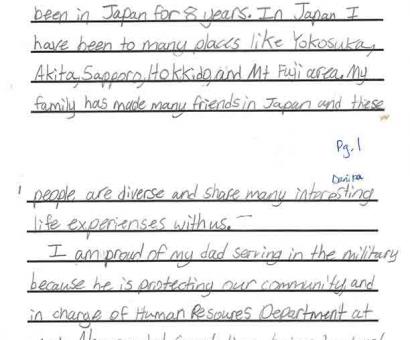 been in Japan for 8 years. In Japan I
have been to many places like Yokosuka,
Akita, Sapporo, Hokkido, and Mt Fuji area. My
family has made many friends in Japan and these
Pg. 1
people are diverse and share many interesting
life experienses with us.
I am proud of my dad serving in the military
because he is protecting our community, and
in charge of Human Resoures Department at